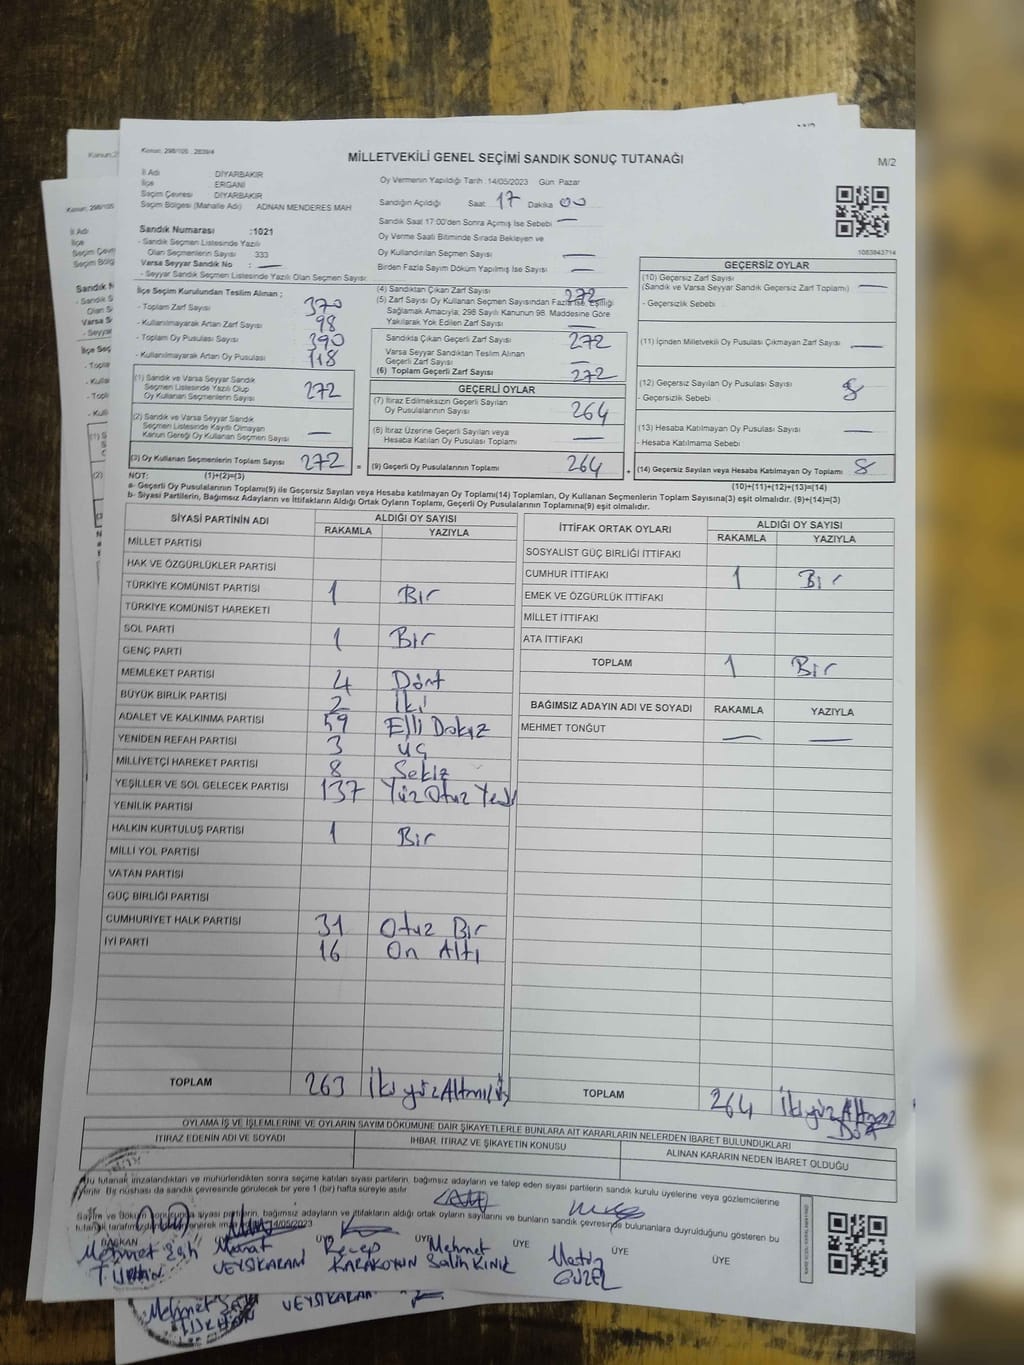 Kanun: 298/105 , 2839/4
MİLLETVEKİLİ GENEL SEÇİMİ SANDIK SONUÇ TUTANAĞI
M/2
İl Adı DİYARBAKIR
İlçe ERGANİ
Seçim Çevresi DİYARBAKIR
Seçim Bölgesi (Mahalle Adı) ADNAN MENDERES MAH
Oy Vermenin Yapıldığı Tarih :14/05/2023 Gün: Pazar
Sandığın Açıldığı Saat 17 Dakika 00
Sandık Saat 17:00'den Sonra Açılmış İse Sebebi —
Sandık Numarası :1021
- Sandık Seçmen Listesinde Yazılı
Olan Seçmenlerin Sayısı 333
Varsa Seyyar Sandık No : —
- Seyyar Sandık Seçmen Listesinde Yazılı Olan Seçmen Sayısı
Oy Verme Saati Bitiminde Sırada Bekleyen ve
Oy Kullandırılan Seçmen Sayısı —
Birden Fazla Sayım Döküm Yapılmış İse Sayısı —
1083843714
İlçe Seçim Kurulundan Teslim Alınan ;
- Toplam Zarf Sayısı 370
- Kullanılmayarak Artan Zarf Sayısı 98
- Toplam Oy Pusulası Sayısı 390
- Kullanılmayarak Artan Oy Pusulası 118
(1) Sandık ve Varsa Seyyar Sandık
Seçmen Listesinde Yazılı Olup
Oy Kullanan Seçmenlerin Sayısı 272
(2) Sandık ve Varsa Seyyar Sandık
Seçmen Listesinde Kayıtlı Olmayan
Kanun Gereği Oy Kullanan Seçmen Sayısı —
(3) Oy Kullanan Seçmenlerin Toplam Sayısı 272
(4) Sandıktan Çıkan Zarf Sayısı 272
(5) Zarf Sayısı Oy Kullanan Seçmen Sayısından Fazla İse, Eşitliği
Sağlamak Amacıyla; 298 Sayılı Kanunun 98. Maddesine Göre
Yakılarak Yok Edilen Zarf Sayısı —
Sandıkta Çıkan Geçerli Zarf Sayısı 272
Varsa Seyyar Sandıktan Teslim Alınan
Geçerli Zarf Sayısı —
(6) Toplam Geçerli Zarf Sayısı 272
GEÇERLİ OYLAR
(7) İtiraz Edilmeksizin Geçerli Sayılan
Oy Pusulalarının Sayısı 264
(8) İtiraz Üzerine Geçerli Sayılan veya
Hesaba Katılan Oy Pusulası Toplamı —
= (9) Geçerli Oy Pusulalarının Toplamı 264
GEÇERSİZ OYLAR
(10) Geçersiz Zarf Sayısı
(Sandık ve Varsa Seyyar Sandık Geçersiz Zarf Toplamı) —
- Geçersizlik Sebebi
(11) İçinden Milletvekili Oy Pusulası Çıkmayan Zarf Sayısı —
(12) Geçersiz Sayılan Oy Pusulası Sayısı 8
- Geçersizlik Sebebi
(13) Hesaba Katılmayan Oy Pusulası Sayısı —
- Hesaba Katılmama Sebebi
+ (14) Geçersiz Sayılan veya Hesaba Katılmayan Oy Toplamı 8
NOT: (1)+(2)=(3)
(10)+(11)+(12)+(13)=(14)
a- Geçerli Oy Pusulaları Toplamı(9) ile Geçersiz Sayılan veya Hesaba katılmayan Oy Toplamı(14) Toplamları, Oy Kullanan Seçmenlerin Toplam Sayısına(3) eşit olmalıdır. (9)+(14)=(3)
b- Siyasi Partilerin, Bağımsız Adayların ve İttifakların Aldığı Ortak Oyların Toplamı, Geçerli Oy Pusulalarının Toplamına(9) eşit olmalıdır.
SİYASİ PARTİNİN ADI ALDIĞI OY SAYISI
RAKAMLA YAZIYLA
MİLLET PARTİSİ
HAK VE ÖZGÜRLÜKLER PARTİSİ
TÜRKİYE KOMÜNİST PARTİSİ 1 Bir
TÜRKİYE KOMÜNİST HAREKETİ
SOL PARTİ 1 Bir
GENÇ PARTİ
MEMLEKET PARTİSİ 4 Dört
BÜYÜK BİRLİK PARTİSİ 2 İki
ADALET VE KALKINMA PARTİSİ 59 Elli Dokuz
YENİDEN REFAH PARTİSİ 3 üç
MİLLİYETÇİ HAREKET PARTİSİ 8 Sekiz
YEŞİLLER VE SOL GELECEK PARTİSİ 137 Yüz Otuz Yedi
YENİLİK PARTİSİ
HALKIN KURTULUŞ PARTİSİ 1 Bir
MİLLİ YOL PARTİSİ
VATAN PARTİSİ
GÜÇ BİRLİĞİ PARTİSİ
CUMHURİYET HALK PARTİSİ 31 Otuz Bir
İYİ PARTİ 16 On Altı
TOPLAM 263 İki yüz Altmış üç
İTTİFAK ORTAK OYLARI ALDIĞI OY SAYISI
RAKAMLA YAZIYLA
SOSYALİST GÜÇ BİRLİĞİ İTTİFAKI
CUMHUR İTTİFAKI 1 Bir
EMEK VE ÖZGÜRLÜK İTTİFAKI
MİLLET İTTİFAKI
ATA İTTİFAKI
TOPLAM 1 Bir
BAĞIMSIZ ADAYIN ADI VE SOYADI RAKAMLA YAZIYLA
MEHMET TONĞUT — —
TOPLAM 264 İkiyüz Altmış
Dört
OYLAMA İŞ VE İŞLEMLERİNE VE OYLARIN SAYIM DÖKÜMÜNE DAİR ŞİKAYETLERLE BUNLARA AİT KARARLARIN NELERDEN İBARET BULUNDUKLARI
İTİRAZ EDENİN ADI VE SOYADI İHBAR, İTİRAZ VE ŞİKAYETİN KONUSU ALINAN KARARIN NEDEN İBARET OLDUĞU
Bu tutanak imzalandıktan ve mühürlendikten sonra seçime katılan siyasi partilerin, bağımsız adayların ve talep eden siyasi partilerin sandık kurulu üyelerine veya gözlemcilerine
verilir. Bir nüshası da sandık çevresinde görülecek bir yere 1 (bir) hafta süreyle asılır.
siyasi partilerin, bağımsız adayların ve ittifakların aldığı ortak oyların sayılarını ve bunların sandık çevresinde bulunanlara duyurulduğunu gösteren bu
14/05/2023
BAŞKAN ÜYE ÜYE ÜYE ÜYE ÜYE
Murat Recep Mehmet Metin
VEYSIKARANI KARAKOYUN Salih KINIK GÜZEL